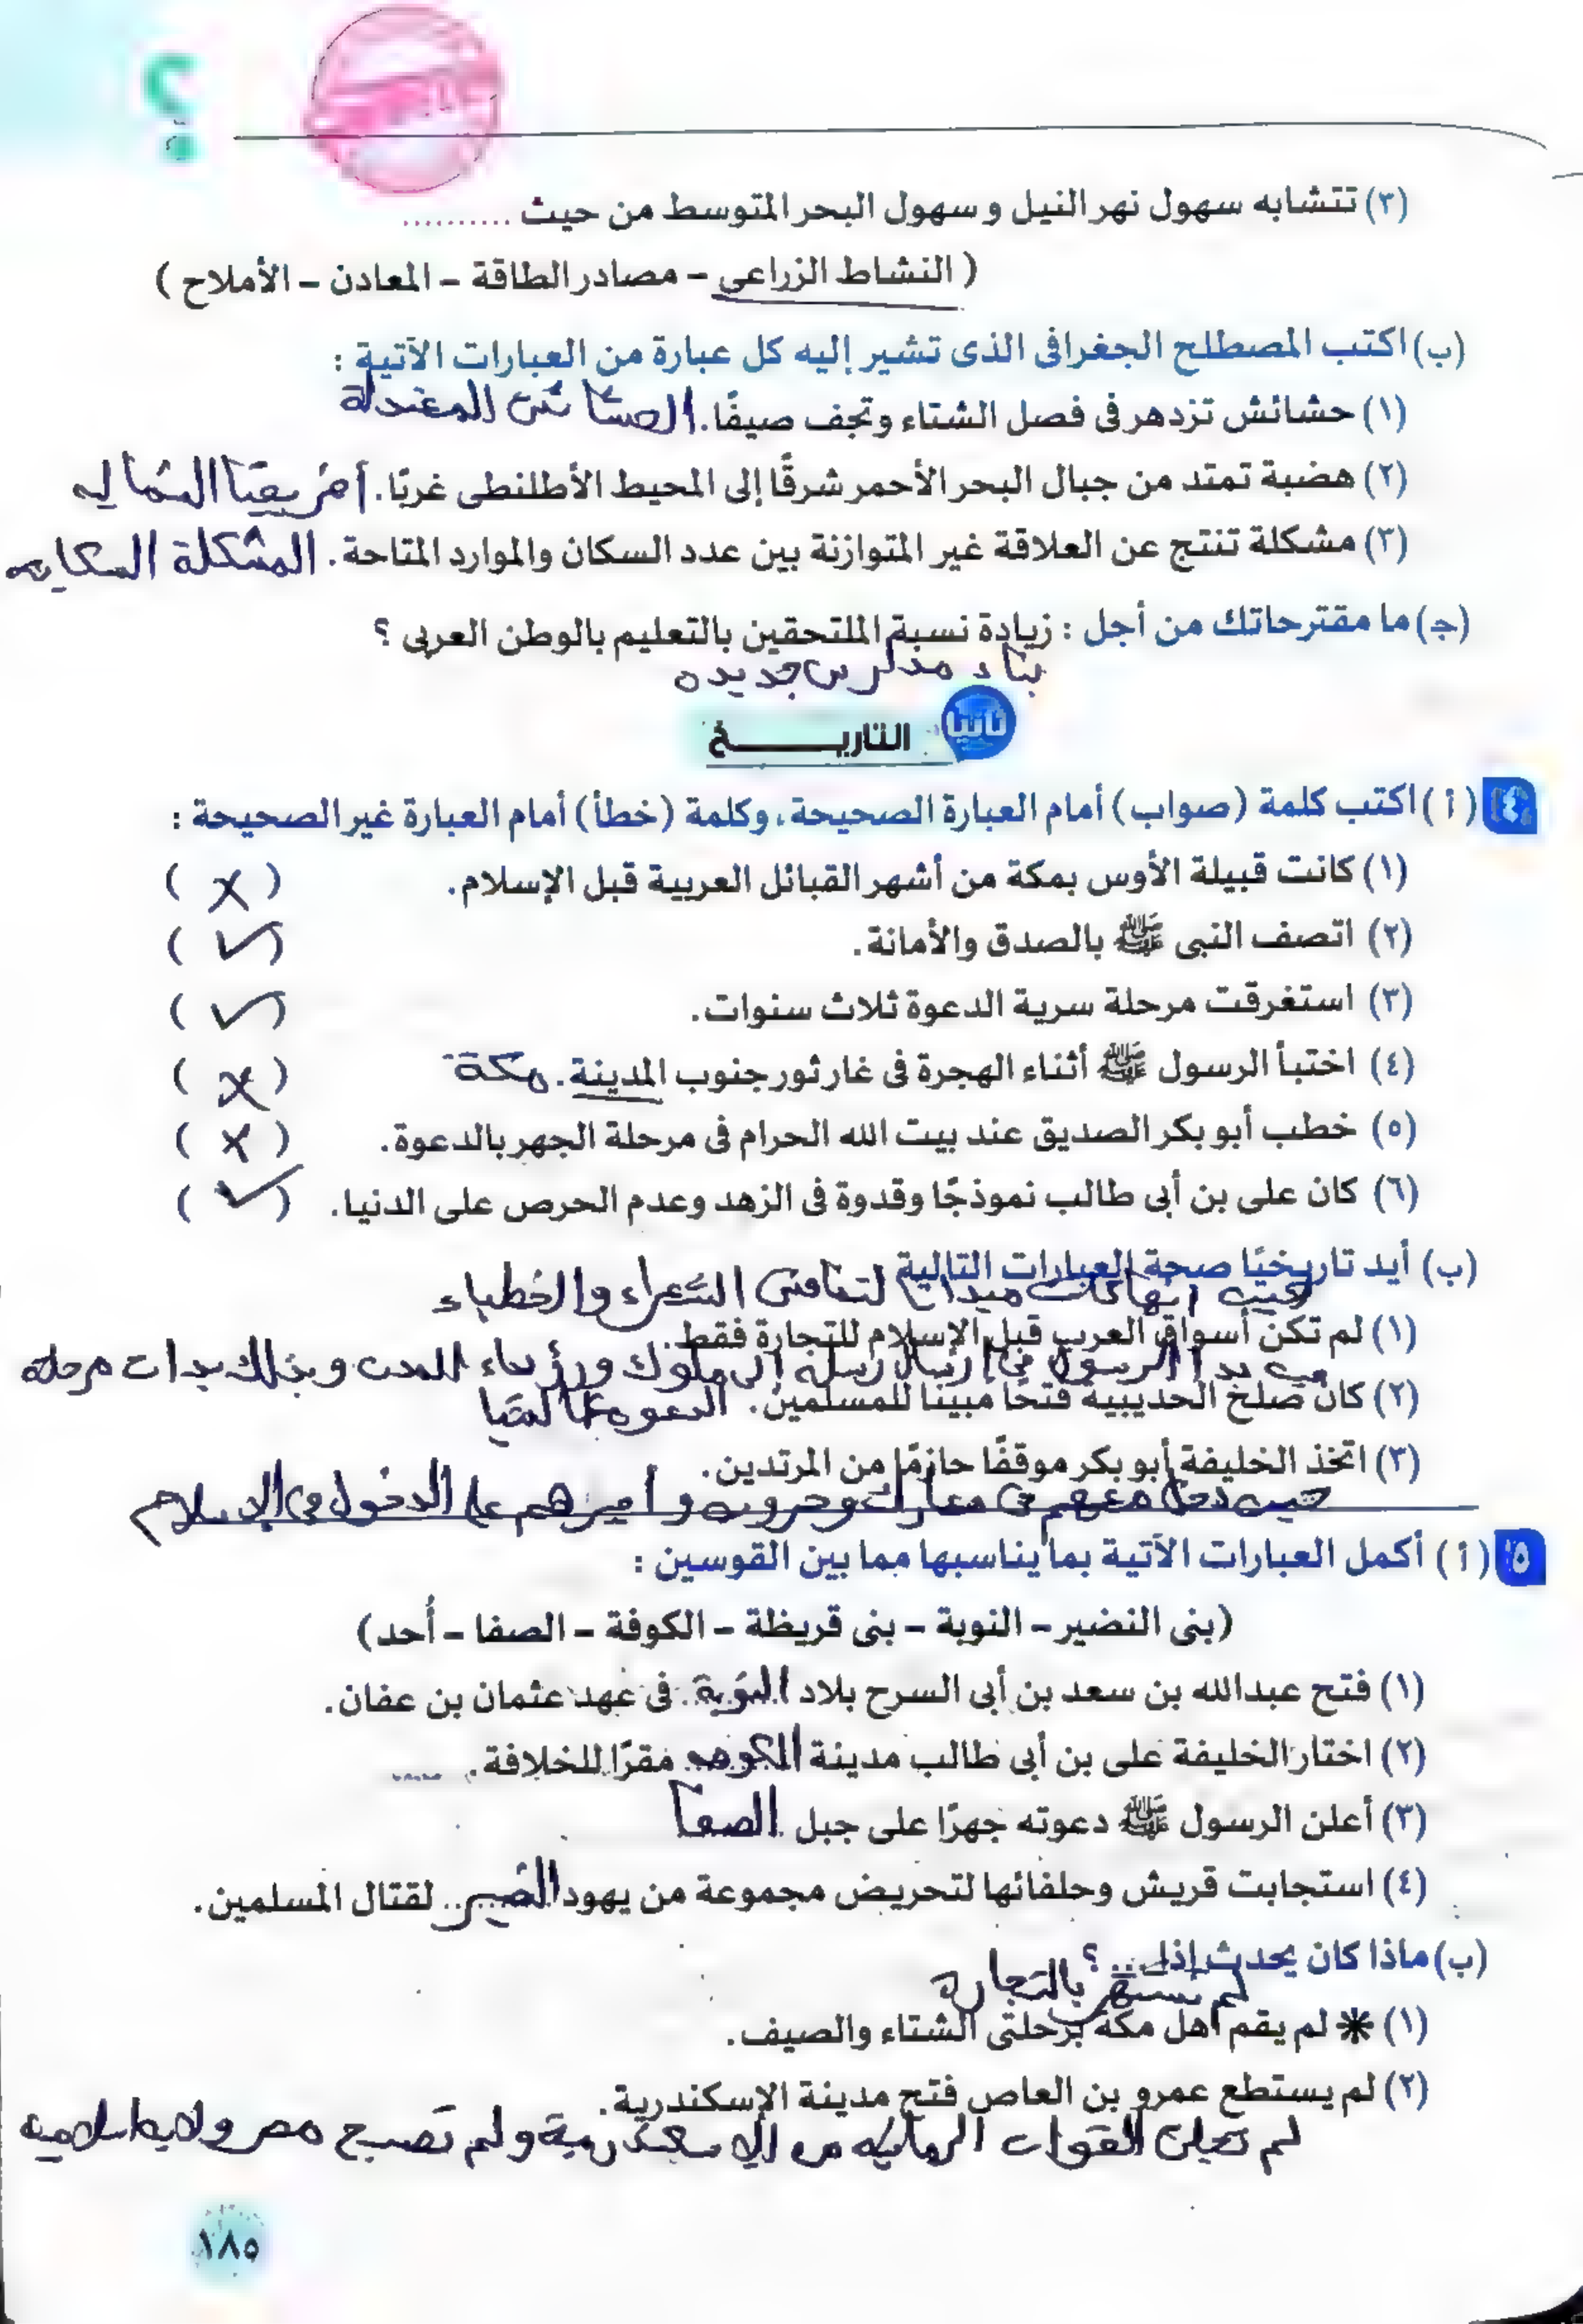 ؟
(٣) تتشابه سهول نهر النيل وسهول البحر المتوسط من حيث ..........
( النشاط الزراعى – مصادر الطاقة – المعادن – الأملاح )
(ب) اكتب المصطلح الجغرافى الذى تشير إليه كل عبارة من العبارات الآتية :
(١) حشائش تزدهر فى فصل الشتاء وتجف صيفًا. المعتدلة
(٢) هضبة تمتد من جبال البحر الأحمر شرقًا إلى المحيط الأطلنطى غربًا. أفريقيا الشماليه
(٣) مشكلة تنتج عن العلاقة غير المتوازنة بين عدد السكان والموارد المتاحة. المشكلة السكانيه
(جـ) ما مقترحاتك من أجل : زيادة نسبة الملتحقين بالتعليم بالوطن العربى ؟
بناء مدارس جديده
ثانيا التاريـــــــخ
٤ (أ) اكتب كلمة (صواب) أمام العبارة الصحيحة، وكلمة (خطأ) أمام العبارة غير الصحيحة :
(١) كانت قبيلة الأوس بمكة من أشهر القبائل العربية قبل الإسلام. ( ✗ )
(٢) اتصف النبى ﷺ بالصدق والأمانة. ( ✓ )
(٣) استغرقت مرحلة سرية الدعوة ثلاث سنوات. ( ✓ )
(٤) اختبأ الرسول ﷺ أثناء الهجرة فى غار ثور جنوب المدينة. مكة ( ✗ )
(٥) خطب أبو بكر الصديق عند بيت الله الحرام فى مرحلة الجهر بالدعوة. ( ✗ )
(٦) كان على بن أبى طالب نموذجًا وقدوة فى الزهد وعدم الحرص على الدنيا. ( ✓ )
(ب) أيد تاريخيًا صحة العبارات التالية
حيث انها كانت لتنافس الشعراء والخطباء
(١) لم تكن أسواق العرب قبل الإسلام للتجارة فقط.
بدأ الرسول فى إرسال رسله إلى ملوك ورؤساء المدن وبذلك بدات مرحلة
(٢) كان صلح الحديبية فتحًا مبينًا للمسلمين. الدعوه عالميا
(٣) اتخذ الخليفة أبو بكر موقفًا حازمًا من المرتدين.
حيث دخل معهم فى معارك وحروب و على الدخول فى الإسلام
٥ (أ) أكمل العبارات الآتية بما يناسبها مما بين القوسين :
(بنى النضير – النوبة – بنى قريظة – الكوفة – الصفا – أُحد)
(١) فتح عبدالله بن سعد بن أبى السرح بلاد النوبة فى عهد عثمان بن عفان.
(٢) اختار الخليفة على بن أبى طالب مدينة الكوفه مقرًا للخلافة.
(٣) أعلن الرسول ﷺ دعوته جهرًا على جبل الصفا
(٤) استجابت قريش وحلفائها لتحريض مجموعة من يهود لقتال المسلمين.
(ب) ماذا كان يحدث إذا ...؟
لم تشتهر بالتجارة
(١) ✳ لم يقم أهل مكة برحلتى الشتاء والصيف.
(٢) لم يستطع عمرو بن العاص فتح مدينة الإسكندرية.
لم القوات من الاسكندرية ولم تصبح مصر ولايه اسلاميه
١٨٥